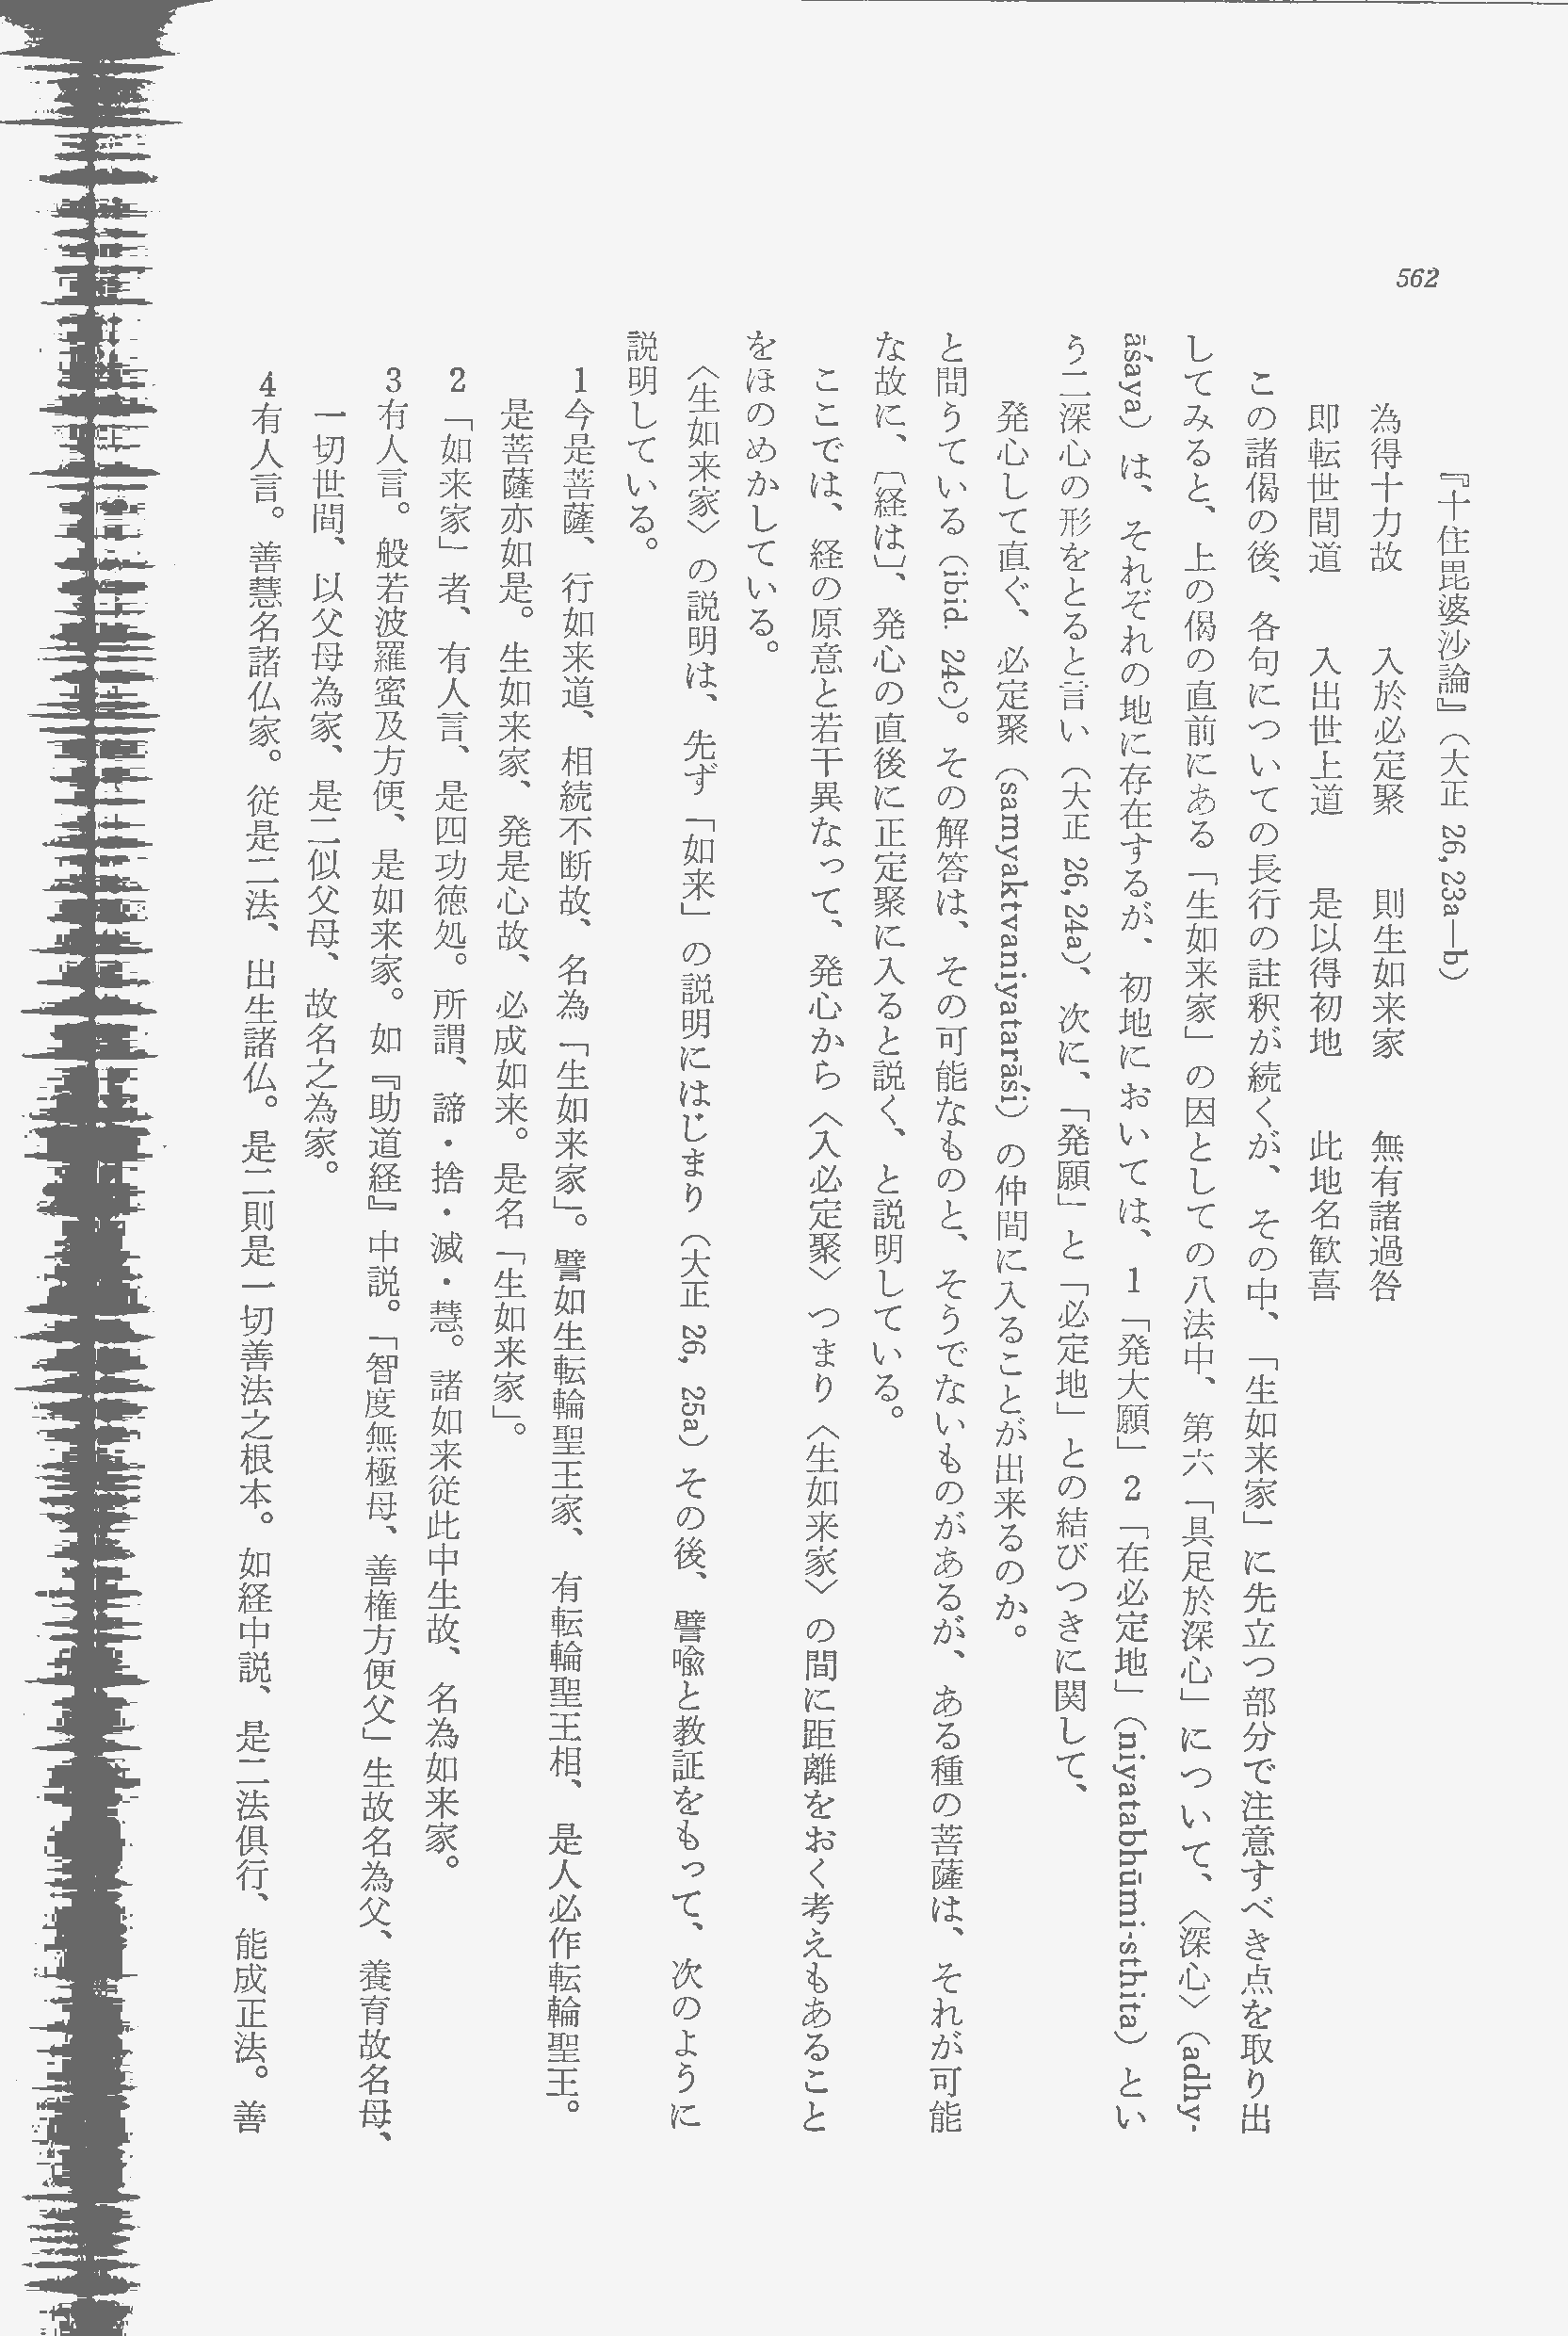 562
『十住毘婆沙論』（大正 26, 23a—b）
為得十力故　入於必定聚　則生如来家　無有諸過咎
即転世間道　入出世上道　是以得初地　此地名歓喜
この諸偈の後、各句についての長行の註釈が続くが、その中、「生如来家」に先立つ部分で注意すべき点を取り出
してみると、上の偈の直前にある「生如来家」の因としての八法中、第六「具足於深心」について、〈深心〉（adhy-
āśaya）は、それぞれの地に存在するが、初地においては、1「発大願」2「在必定地」（niyatabhūmi-sthita）とい
う二深心の形をとると言い（大正 26, 24a）、次に、「発願」と「必定地」との結びつきに関して、
発心して直ぐ、必定聚（samyaktvaniyatarāśi）の仲間に入ることが出来るのか。
と問うている（ibid. 24c）。その解答は、その可能なものと、そうでないものがあるが、ある種の菩薩は、それが可能
な故に、〔経は〕、発心の直後に正定聚に入ると説く、と説明している。
ここでは、経の原意と若干異なって、発心から〈入必定聚〉つまり〈生如来家〉の間に距離をおく考えもあること
をほのめかしている。
〈生如来家〉の説明は、先ず「如来」の説明にはじまり（大正 26, 25a）その後、譬喩と教証をもって、次のように
説明している。
1 今是菩薩、行如来道、相続不断故、名為「生如来家」。譬如生転輪聖王家、有転輪聖王相、是人必作転輪聖王。
是菩薩亦如是。生如来家、発是心故、必成如来。是名「生如来家」。
2 「如来家」者、有人言、是四功徳処。所謂、諦・捨・滅・慧。諸如来従此中生故、名為如来家。
3 有人言。般若波羅蜜及方便、是如来家。如『助道経』中説。「智度無極母、善権方便父」生故名為父、養育故名母、
一切世間、以父母為家、是二似父母、故名之為家。
4 有人言。善慧名諸仏家。従是二法、出生諸仏。是二則是一切善法之根本。如経中説、是二法俱行、能成正法。善